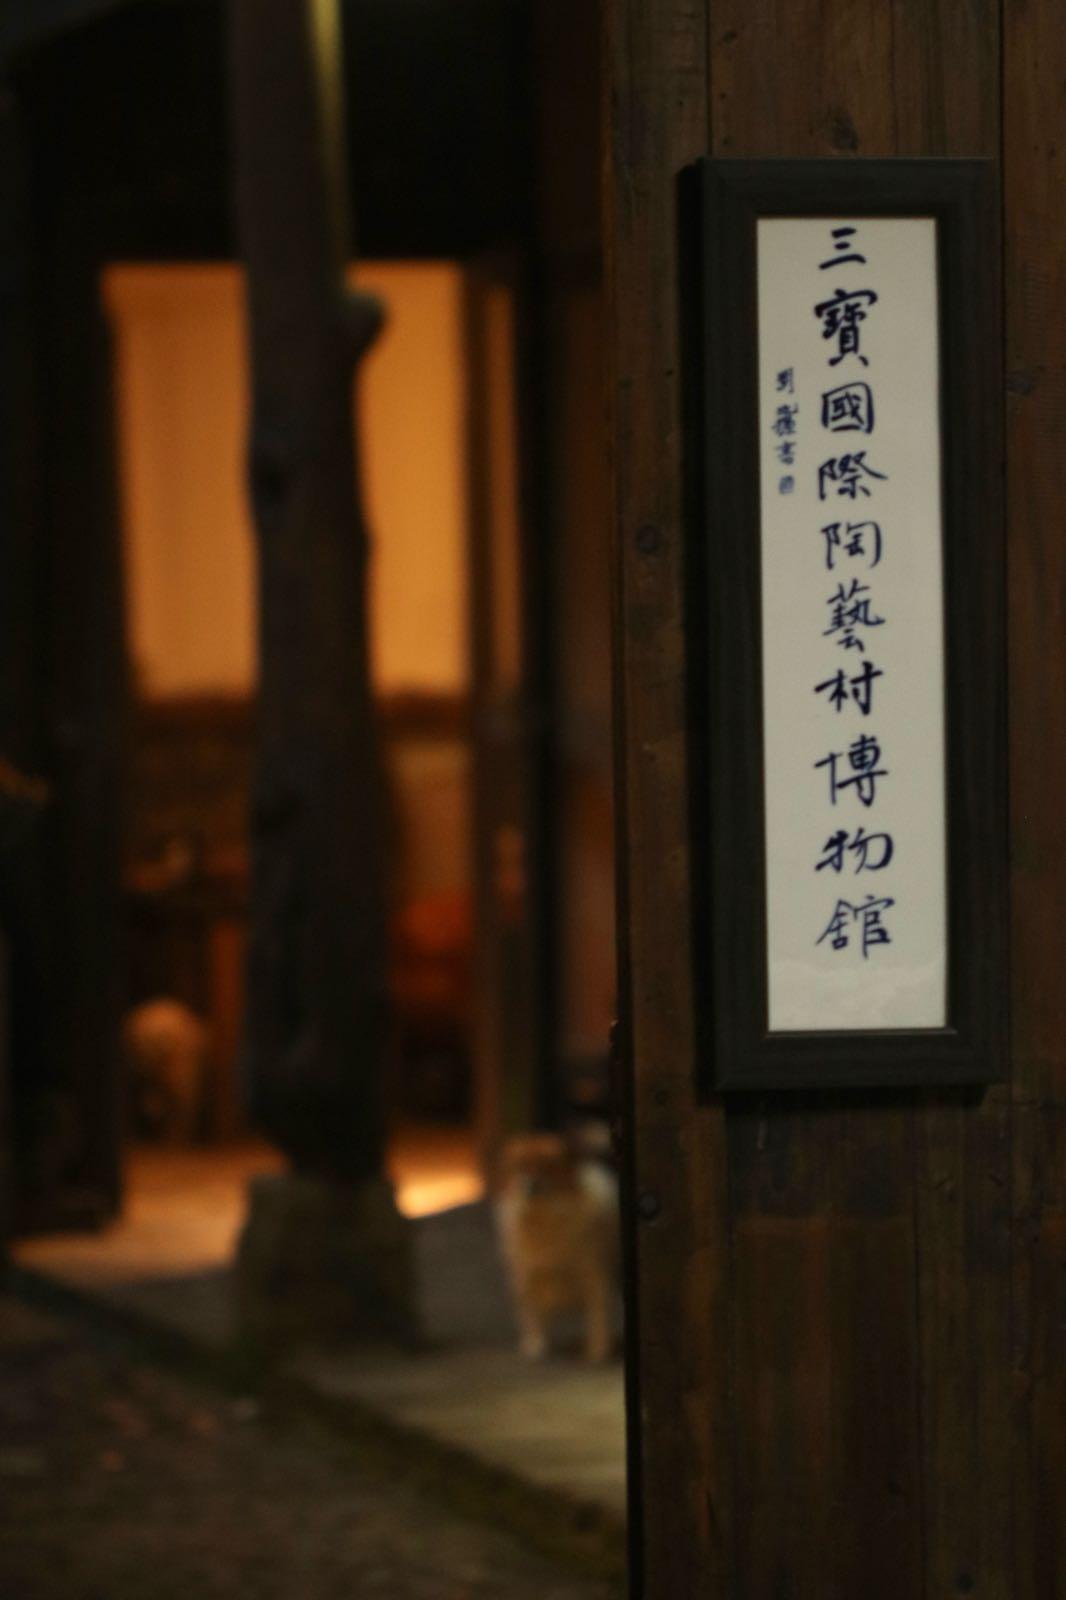 三寶國際陶藝村博物館